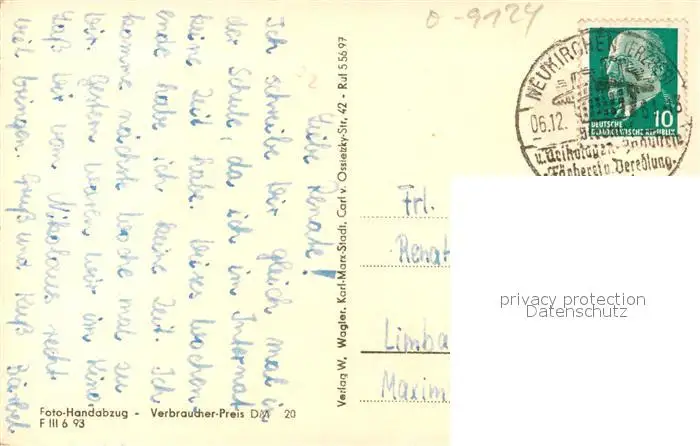 0-9124
NEUKIRCHEN (ERZGEB)
06.12.
DEUTSCHE
DEMOKRATISCHE REPUBLIK
10
Färberei u. Veredlung
Liebe Renate!
Ich schreibe Dir gleich mal in
der Schule, da ich im Internat
keine Zeit habe. Dieses Wochen-
ende habe ich keine Zeit. Ich
komme nächste Woche mal zu
Dir. Gestern waren wir im Kino.
Laß Dir vom Nikolaus recht
viel bringen. Gruß und Kuß Bärbel
Foto-Handabzug - Verbraucher-Preis DM 20
F III 6 93
Verlag W. Wagler, Karl-Marx-Stadt, Carl v. Ossietzky-Str. 42 - Ruf 5 56 97
Frl.
Renat
Limba
Maxim
privacy protection
Datenschutz